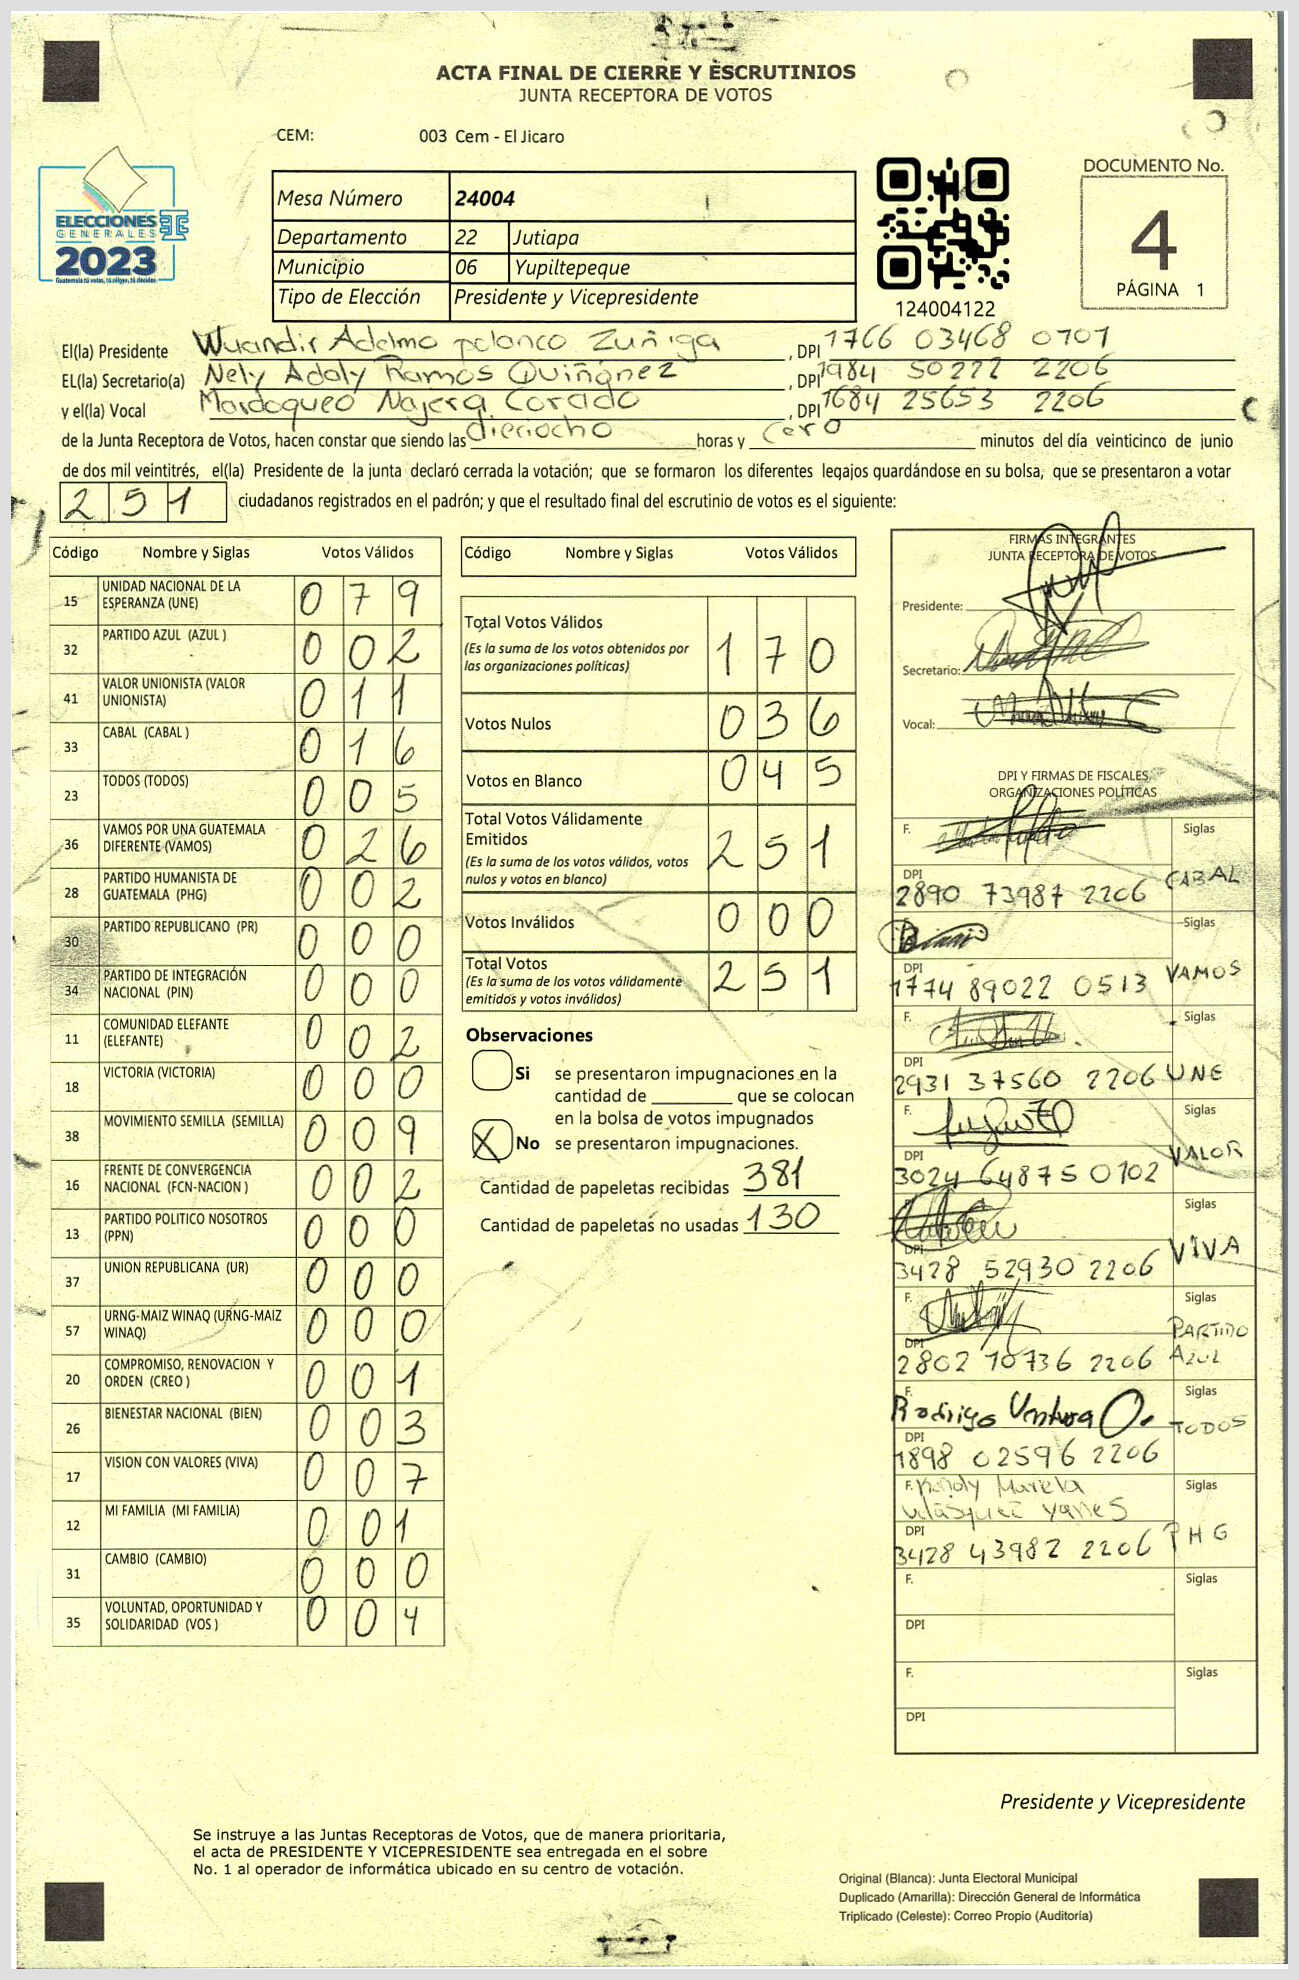 ACTA FINAL DE CIERRE Y ESCRUTINIOS
JUNTA RECEPTORA DE VOTOS
CEM: 003 Cem - El Jicaro
ELECCIONES
GENERALES
2023
Guatemala tú votas, tú eliges, tú decides
Mesa Número 24004
Departamento 22 Jutiapa
Municipio 06 Yupiltepeque
Tipo de Elección Presidente y Vicepresidente
124004122
DOCUMENTO No.
4
PÁGINA 1
El(la) Presidente Wuandir Adelmo polanco Zuñiga, DPI 1766 03468 0701
EL(la) Secretario(a) Nely Adaly Ramos Quiñónez, DPI 1984 50222 2206
y el(la) Vocal Mardoqueo Najera Corado, DPI 1684 25653 2206
de la Junta Receptora de Votos, hacen constar que siendo las dieciocho horas y cero minutos del día veinticinco de junio
de dos mil veintitrés, el(la) Presidente de la junta declaró cerrada la votación; que se formaron los diferentes legajos guardándose en su bolsa, que se presentaron a votar
251 ciudadanos registrados en el padrón; y que el resultado final del escrutinio de votos es el siguiente:
Código Nombre y Siglas Votos Válidos
15 UNIDAD NACIONAL DE LA ESPERANZA (UNE) 079
32 PARTIDO AZUL (AZUL ) 002
41 VALOR UNIONISTA (VALOR UNIONISTA) 011
33 CABAL (CABAL ) 016
23 TODOS (TODOS) 005
36 VAMOS POR UNA GUATEMALA DIFERENTE (VAMOS) 026
28 PARTIDO HUMANISTA DE GUATEMALA (PHG) 002
30 PARTIDO REPUBLICANO (PR) 000
34 PARTIDO DE INTEGRACIÓN NACIONAL (PIN) 000
11 COMUNIDAD ELEFANTE (ELEFANTE) 002
18 VICTORIA (VICTORIA) 000
38 MOVIMIENTO SEMILLA (SEMILLA) 009
16 FRENTE DE CONVERGENCIA NACIONAL (FCN-NACION ) 002
13 PARTIDO POLITICO NOSOTROS (PPN) 000
37 UNION REPUBLICANA (UR) 000
57 URNG-MAIZ WINAQ (URNG-MAIZ WINAQ) 000
20 COMPROMISO, RENOVACION Y ORDEN (CREO ) 001
26 BIENESTAR NACIONAL (BIEN) 003
17 VISION CON VALORES (VIVA) 007
12 MI FAMILIA (MI FAMILIA) 001
31 CAMBIO (CAMBIO) 000
35 VOLUNTAD, OPORTUNIDAD Y SOLIDARIDAD (VOS ) 004
Código Nombre y Siglas Votos Válidos
Total Votos Válidos 170
(Es la suma de los votos obtenidos por las organizaciones políticas)
Votos Nulos 036
Votos en Blanco 045
Total Votos Válidamente Emitidos 251
(Es la suma de los votos válidos, votos nulos y votos en blanco)
Votos Inválidos 000
Total Votos 251
(Es la suma de los votos válidamente emitidos y votos inválidos)
Observaciones
Si se presentaron impugnaciones en la
cantidad de ________ que se colocan
en la bolsa de votos impugnados
X No se presentaron impugnaciones.
Cantidad de papeletas recibidas 381
Cantidad de papeletas no usadas 130
FIRMAS INTEGRANTES
JUNTA RECEPTORA DE VOTOS
Presidente:
Secretario:
Vocal:
DPI Y FIRMAS DE FISCALES,
ORGANIZACIONES POLÍTICAS
F. Siglas
DPI 2890 73987 2206 CABAL
Siglas
DPI 1774 89022 0513 VAMOS
F. Siglas
DPI 2931 37560 2206 UNE
F. Siglas
DPI 3024 64875 0102 VALOR
F. Siglas
DPI 3428 52930 2206 VIVA
F. Siglas
DPI 2802 70736 2206 PARTIDO AZUL
F. Rodrigo Ventura O. Siglas
DPI 1898 02596 2206 TODOS
F. Mariela Velásquez Yanes Siglas
DPI 3428 43982 2206 PHG
F. Siglas
DPI
F. Siglas
DPI
Presidente y Vicepresidente
Se instruye a las Juntas Receptoras de Votos, que de manera prioritaria,
el acta de PRESIDENTE Y VICEPRESIDENTE sea entregada en el sobre
No. 1 al operador de informática ubicado en su centro de votación.
Original (Blanca): Junta Electoral Municipal
Duplicado (Amarilla): Dirección General de Informática
Triplicado (Celeste): Correo Propio (Auditoría)